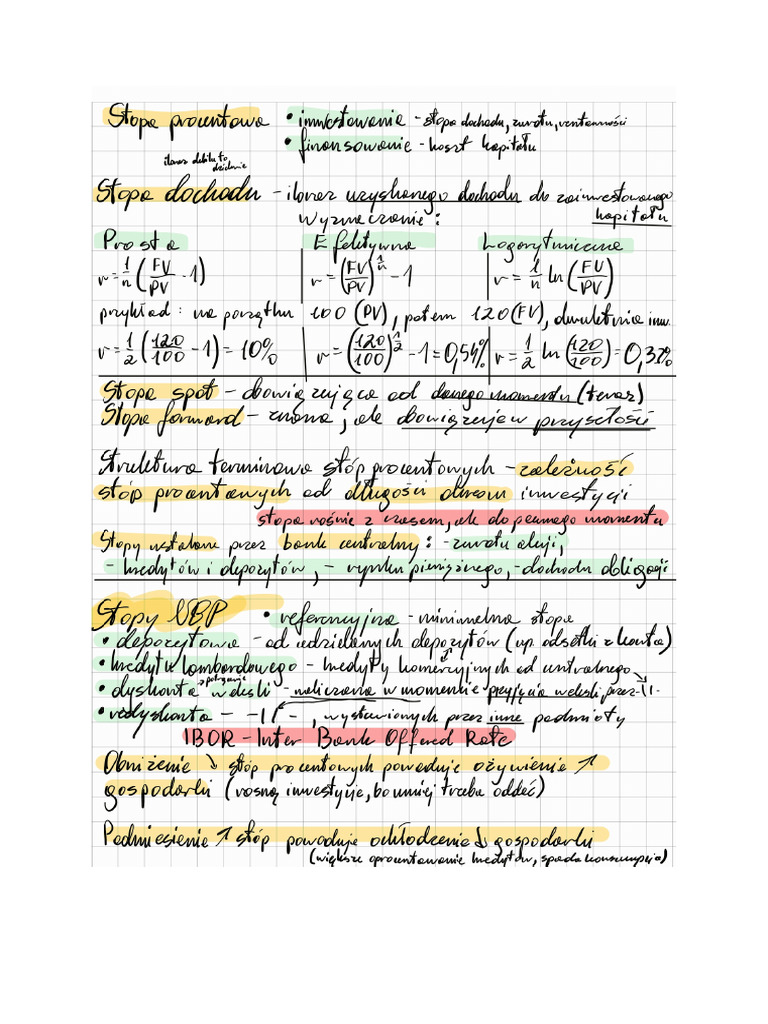 Stopa procentowa • inwestowanie - stopa dochodu, zwrotu, rentowności
• finansowanie - koszt kapitału
iloraz debilu to dzielenie
Stopa dochodu - iloraz uzyskanego dochodu do zainwestowanego kapitału
Wyznaczanie:
Prosta Efektywna Logarytmiczna
r = 1/n (FV/PV - 1) r = (FV/PV)^1/n - 1 r = 1/n ln (FV/PV)
przykład: na początku 100 (PV), potem 120 (FV), dwuletnia inw.
r = 1/2 (120/100 - 1) = 10% r = (120/100)^1/2 - 1 = 0,54% r = 1/2 ln (120/100) = 0,32%
Stopa spot - obowiązująca od danego momentu (teraz)
Stopa forward - znana, ale obowiązuje w przyszłości
Struktura terminowa stóp procentowych - zależność
stóp procentowych od długości okresu inwestycji
stopa rośnie z czasem, ale do pewnego momentu
Stopy ustalane przez bank centralny: - zwrotu akcji,
- kredytów i depozytów, - rynku pieniężnego, - dochodu obligacji
Stopy NBP • referencyjna - minimalna stopa
• depozytowa - od udzielanych depozytów (np. odsetki z konta)
• kredytu lombardowego - kredyty komercyjnych od centralnego
potrącenie
• dyskonta weksli - naliczana w momencie przyjęcia weksli przez -11-
• redyskonta - -11- , wystawionych przez inne podmioty
IBOR - Inter Bank Offered Rate
Obniżenie ↘ stóp procentowych powoduje ożywienie ↗
gospodarki (rosną inwestycje, bo mniej trzeba oddać)
Podniesienie ↗ stóp powoduje ochłodzenie ↓ gospodarki
(większe oprocentowanie kredytów, spada konsumpcja)